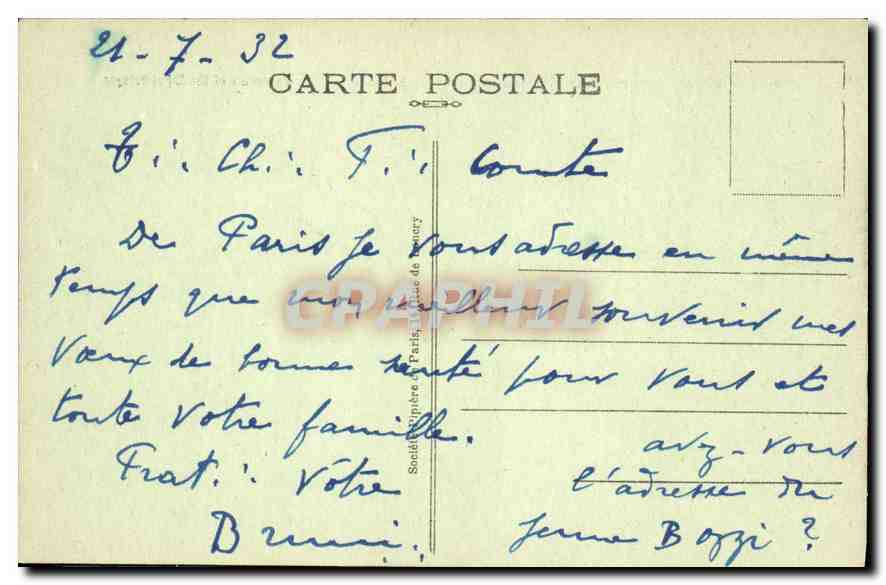 21-7-32
CARTE POSTALE
T∴ Ch∴ F∴ Comte
De Paris je vous adresse en même
temps que mon meilleur souvenir mes
vœux de bonne santé pour vous et
toute votre famille.
Frat∴ Vôtre
Bruni.
avez-vous
l'adresse du
jeune Bozzi ?
Société Pipière de Paris, Rue de Lancry
CPAPHIL